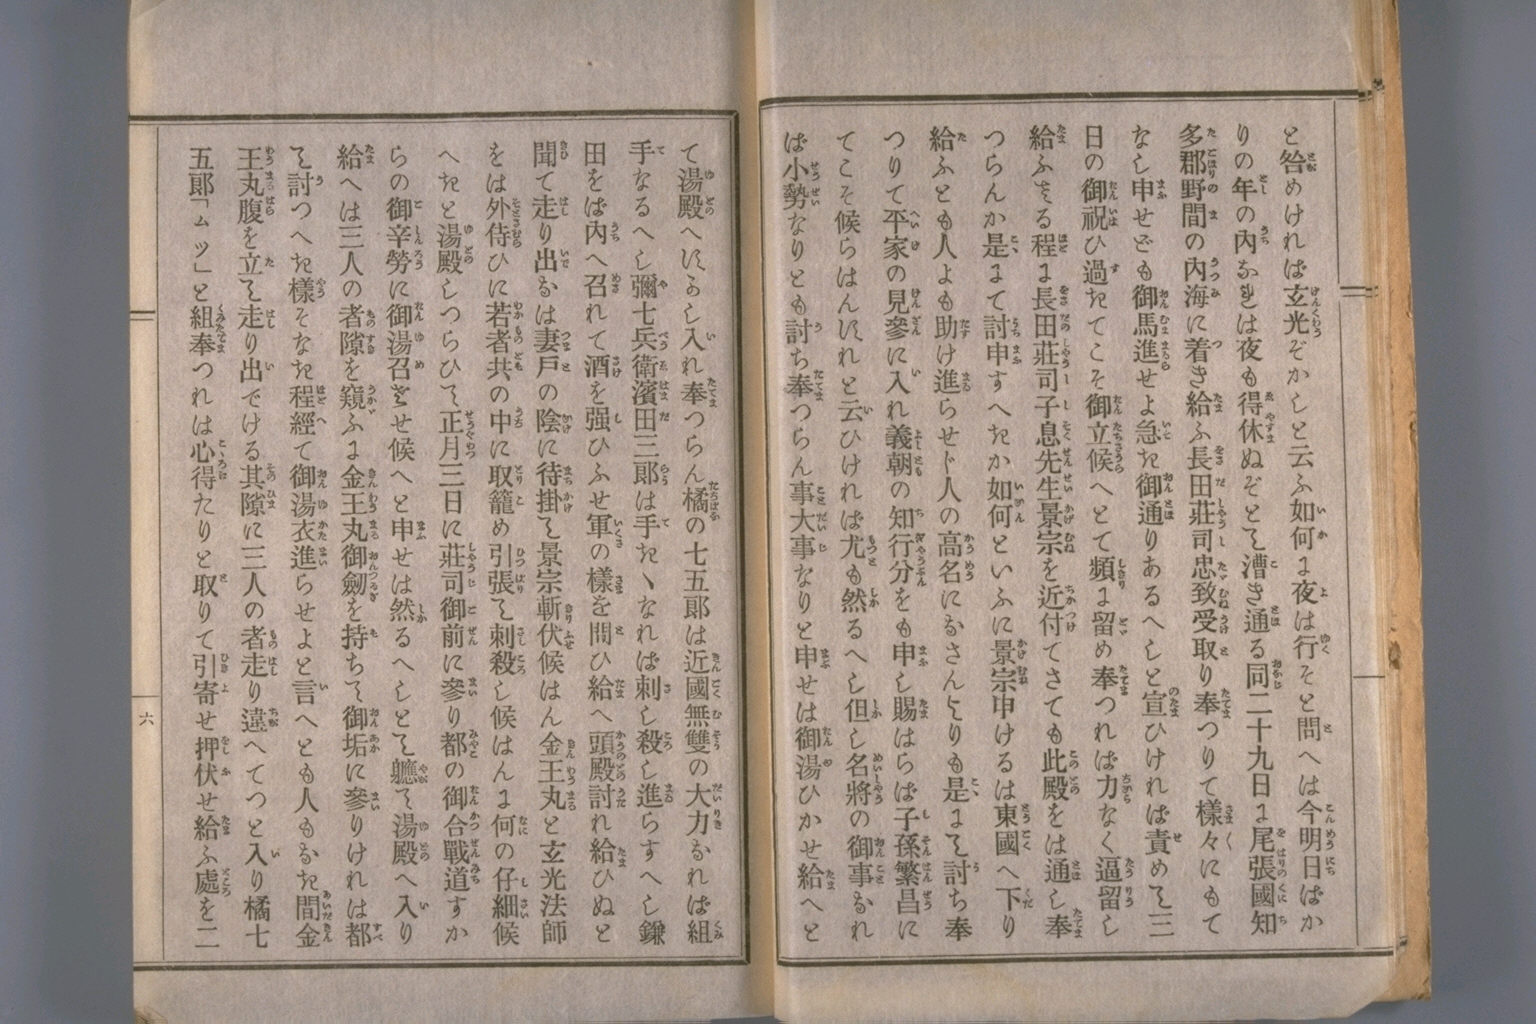 と咎めければ玄光ぞかしと云ふ如何に夜は行そと問へは今明日ばか
りの年の內なれは夜も得休ぬぞとて漕き通る同二十九日に尾張國知
多郡野間の內海に着き給ふ長田莊司忠致受取り奉つりて樣々にもて
なし申せども御馬進せよ急き御通りあるへしと宣ひければ責めて三
日の御祝ひ過きてこそ御立候へとて頻に留め奉つれば力なく逼留し
給ふさる程に長田莊司子息先生景宗を近付てさても此殿をは通し奉
つらんか是にて討申すへきか如何といふに景宗申けるは東國へ下り
給ふとも人よも助け進らせじ人の高名になさんよりも是にて討ち奉
つりて平家の見參に入れ義朝の知行分をも申し賜はらば子孫繁昌に
てこそ候らはんずれと云ひければ尤も然るへし但し名將の御事なれ
ば小勢なりとも討ち奉つらん事大事なりと申せは御湯ひかせ給へと
て湯殿へすかし入れ奉つらん橘の七五郞は近國無雙の大力なれば組
手なるへし彌七兵衛濱田三郞は手きゝなれば刺し殺し進らすへし鎌
田をば內へ召れて酒を强ひふせ軍の樣を問ひ給へ頭殿討れ給ひぬと
聞て走り出なは妻戶の陰に待掛て景宗斬伏候はん金王丸と玄光法師
をは外侍ひに若者共の中に取籠め引張て刺殺し候はんに何の仔細候
へきと湯殿しつらひて正月三日に莊司御前に參り都の御合戰道すか
らの御辛勞に御湯召させ候へと申せは然るへしとて軈て湯殿へ入り
給へは三人の者隙を窺ふに金王丸御劔を持ちて御垢に參りけれは都
て討つへき樣そなき程經て御湯衣進らせよと言へとも人もなき間金
王丸腹を立て走り出でける其隙に三人の者走り違へてつと入り橘七
五郞「ムツ」と組奉つれは心得たりと取りて引寄せ押伏せ給ふ處を二
六